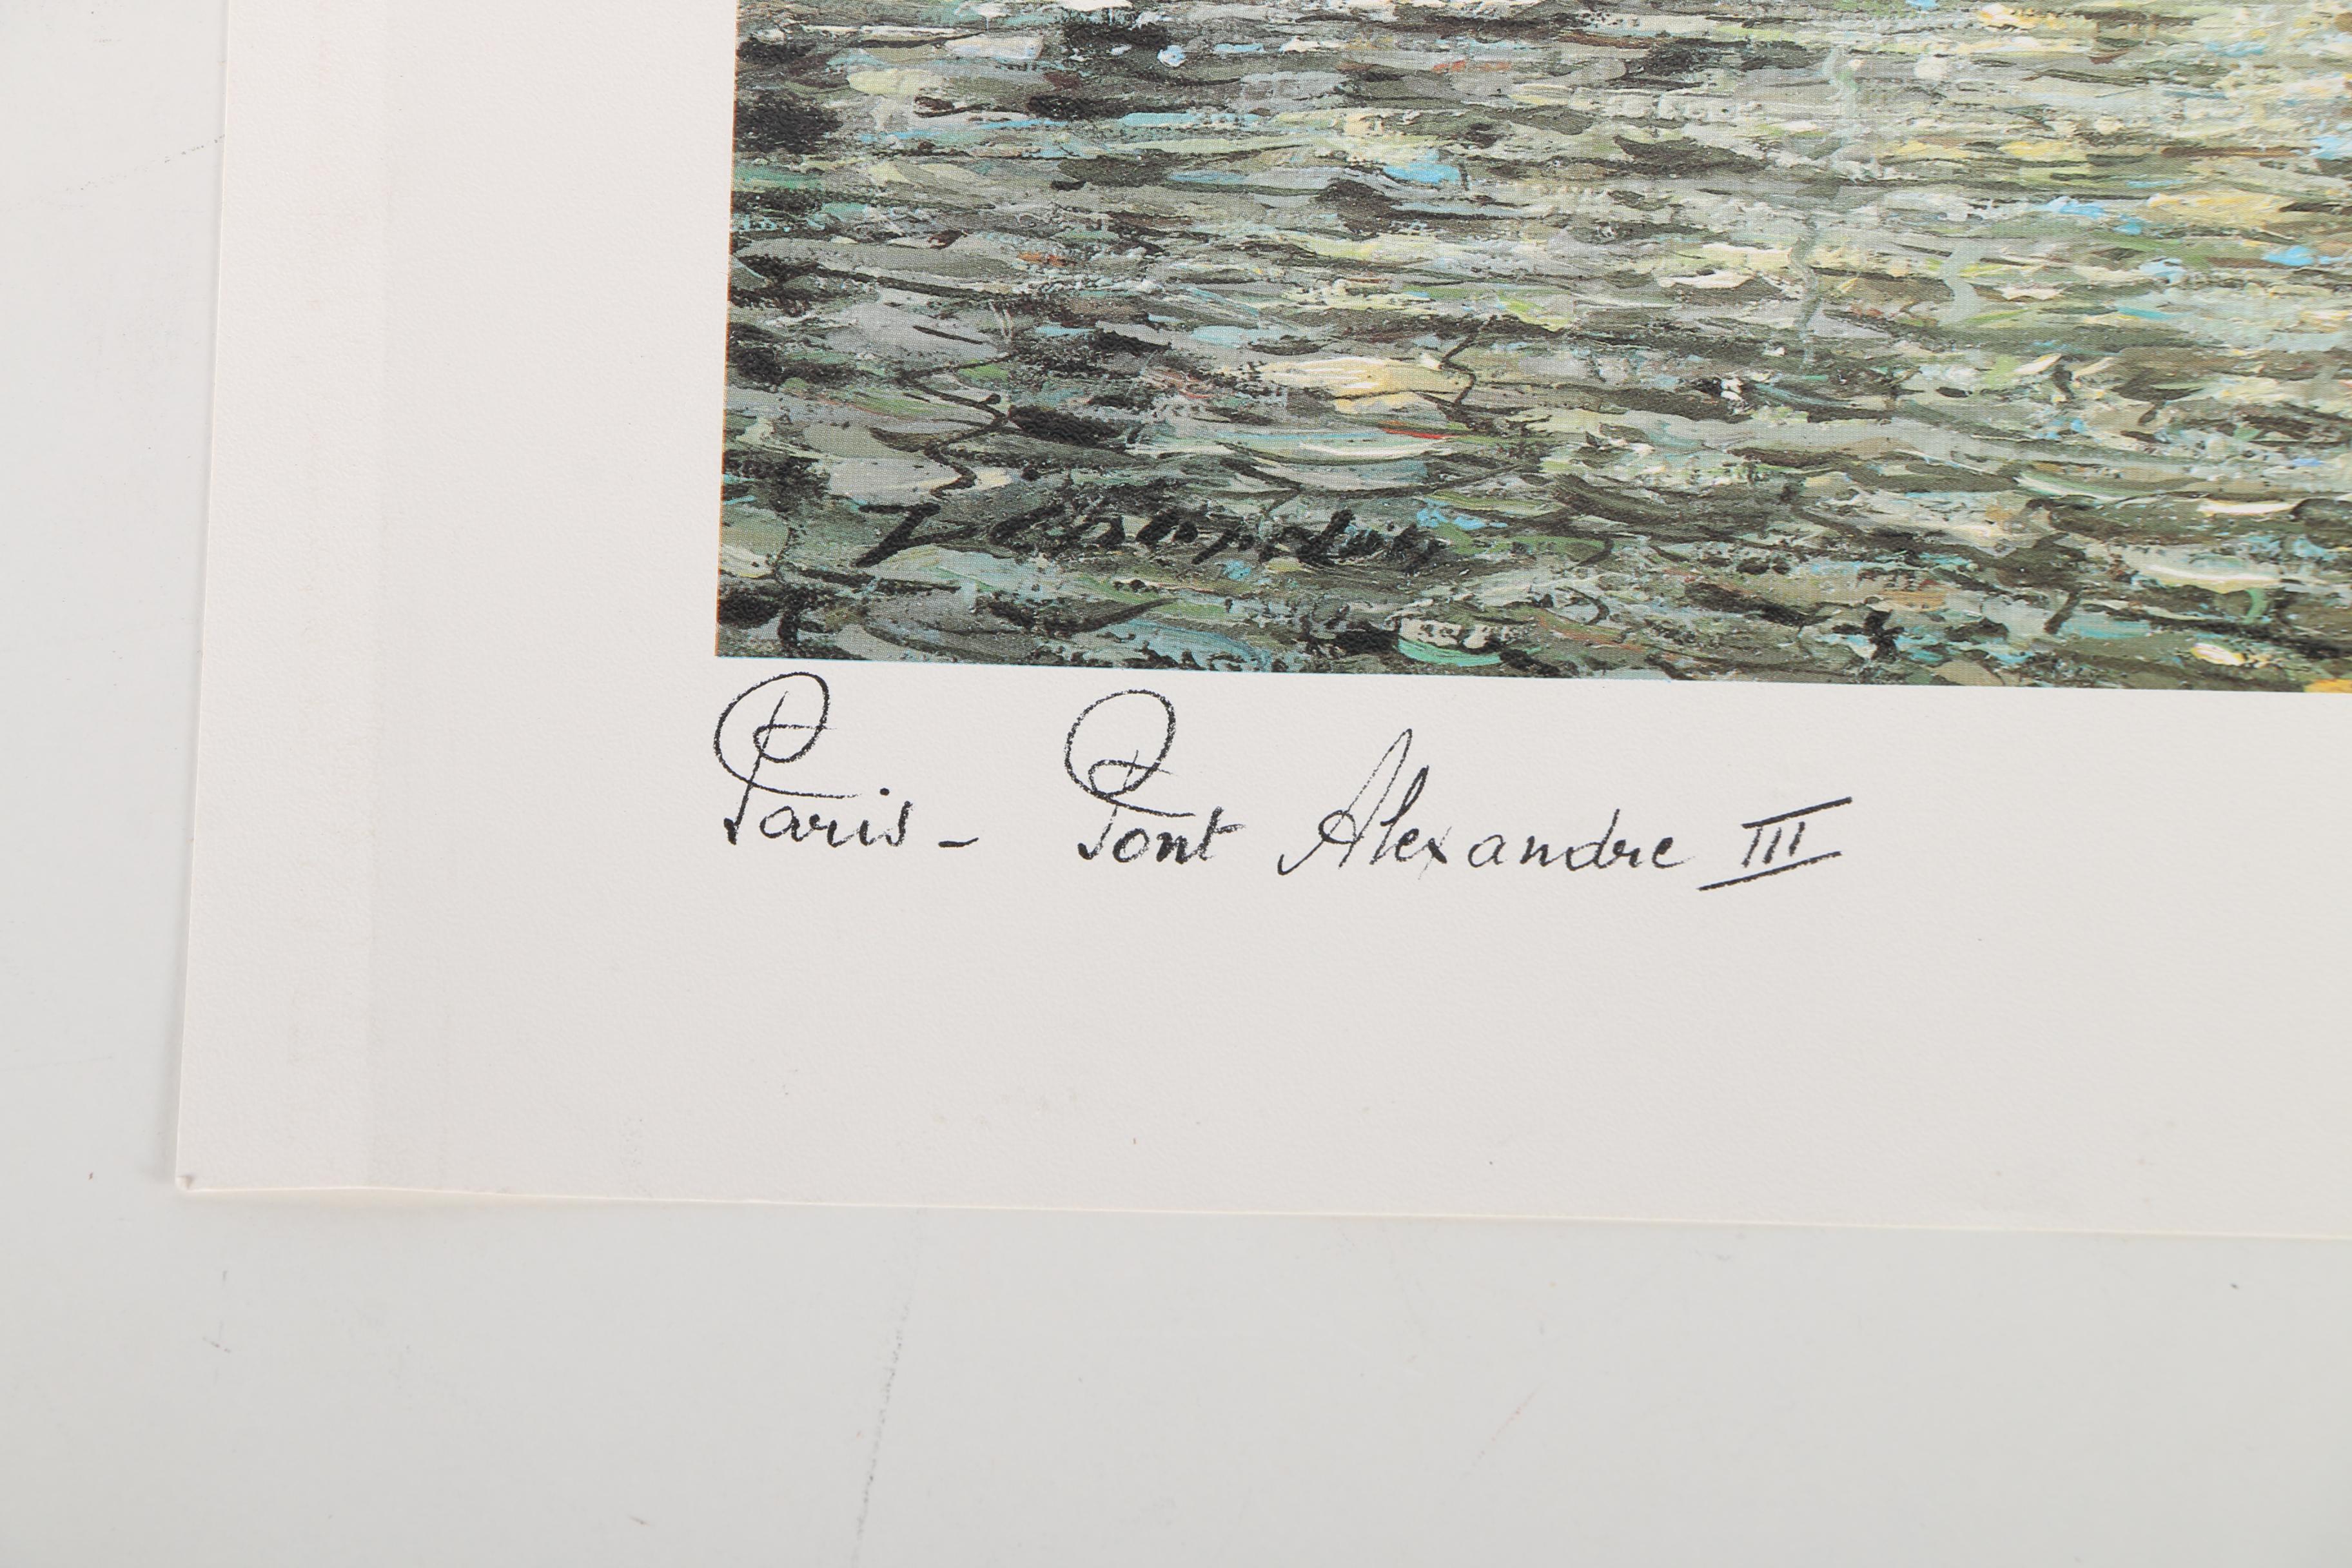 Paris - Pont Alexandre III